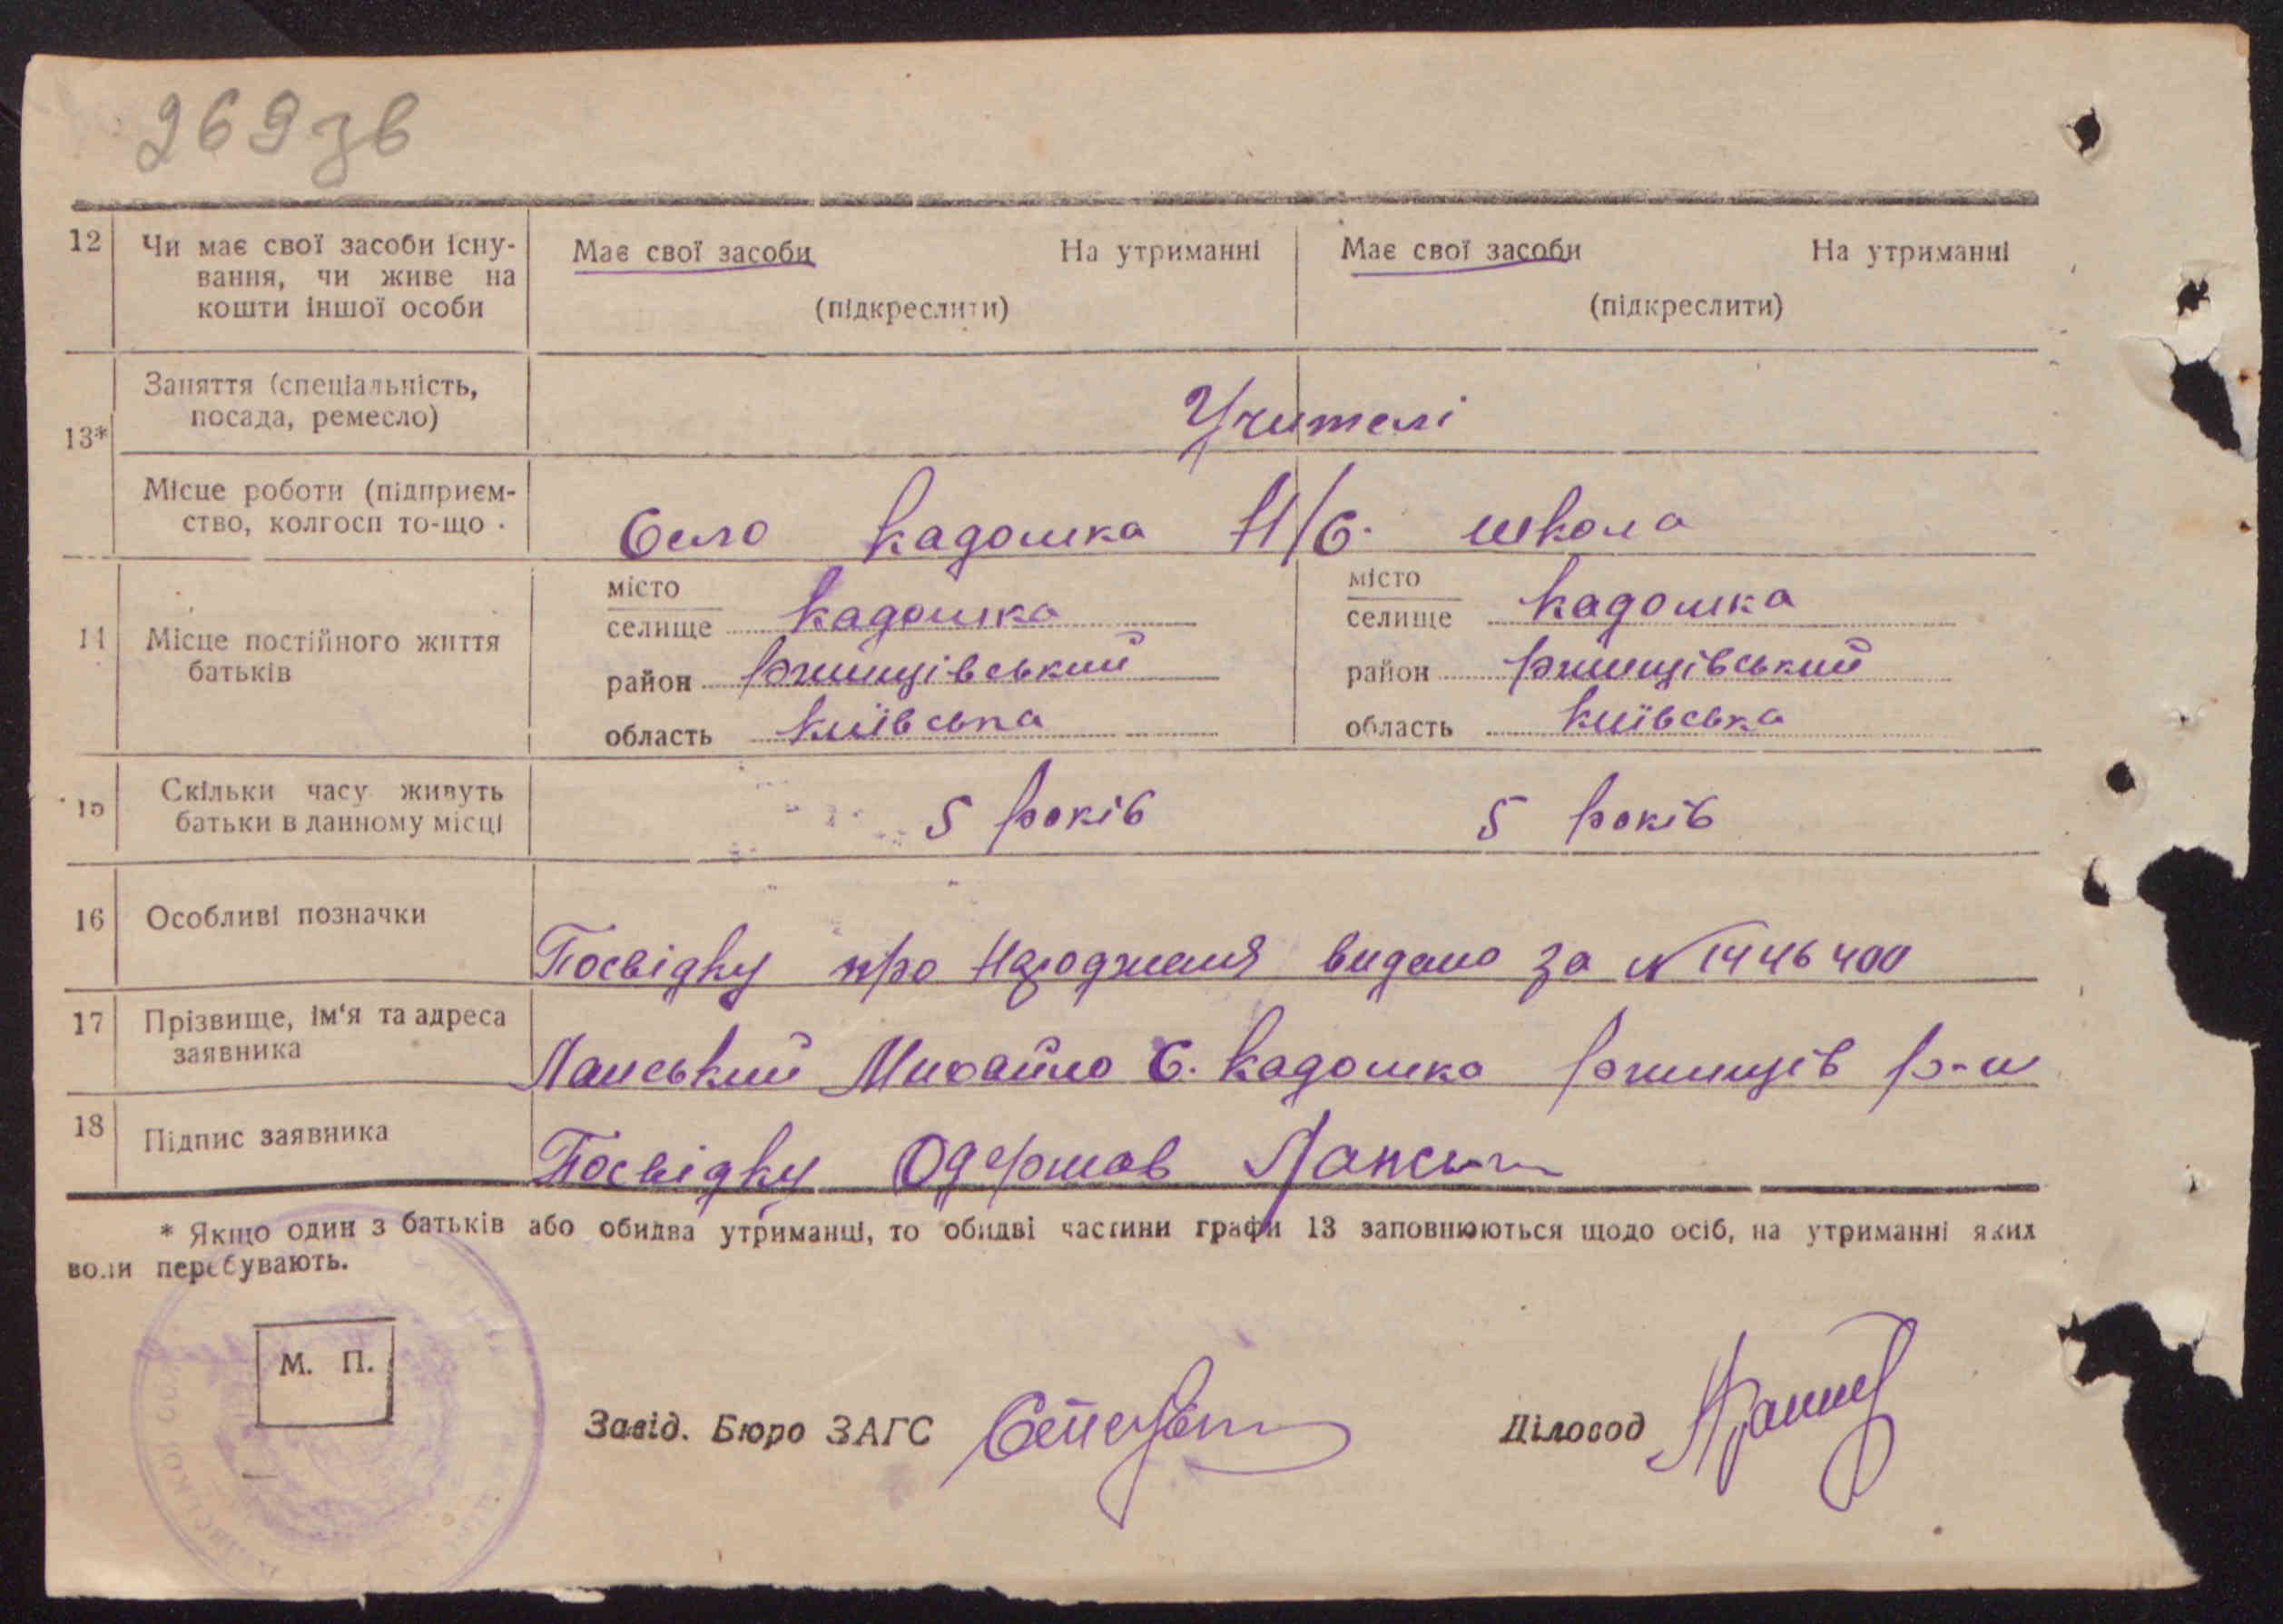 269 зв
12 Чи має свої засоби існу- Має свої засоби На утриманні Має свої засоби На утриманні
вання, чи живе на
кошти іншої особи (підкреслити) (підкреслити)
Заняття (спеціальність,
посада, ремесло) Учителі
13*
Місце роботи (підприєм-
ство, колгосп то-що Село Кадошка Н/С. школа
місто місто
селище Кадошка селище Кадошка
14 Місце постійного життя
батьків
район Ржищівський район Ржищівський
область Київська область Київська
15 Скільки часу живуть
батьки в данному місці 5 років 5 років
16 Особливі позначки
Посвідку про народження видано за № 1446400
17 Прізвище, ім'я та адреса
заявника Ланський Михайло С. Кадошка Ржищів р-н
18 Підпис заявника Посвідку Одержав
* Якщо один з батьків або обидва утриманці, то обидві частини графи 13 заповнюються щодо осіб, на утриманні яких
вони перебувають.
М. П.
Завід. Бюро ЗАГС Діловод